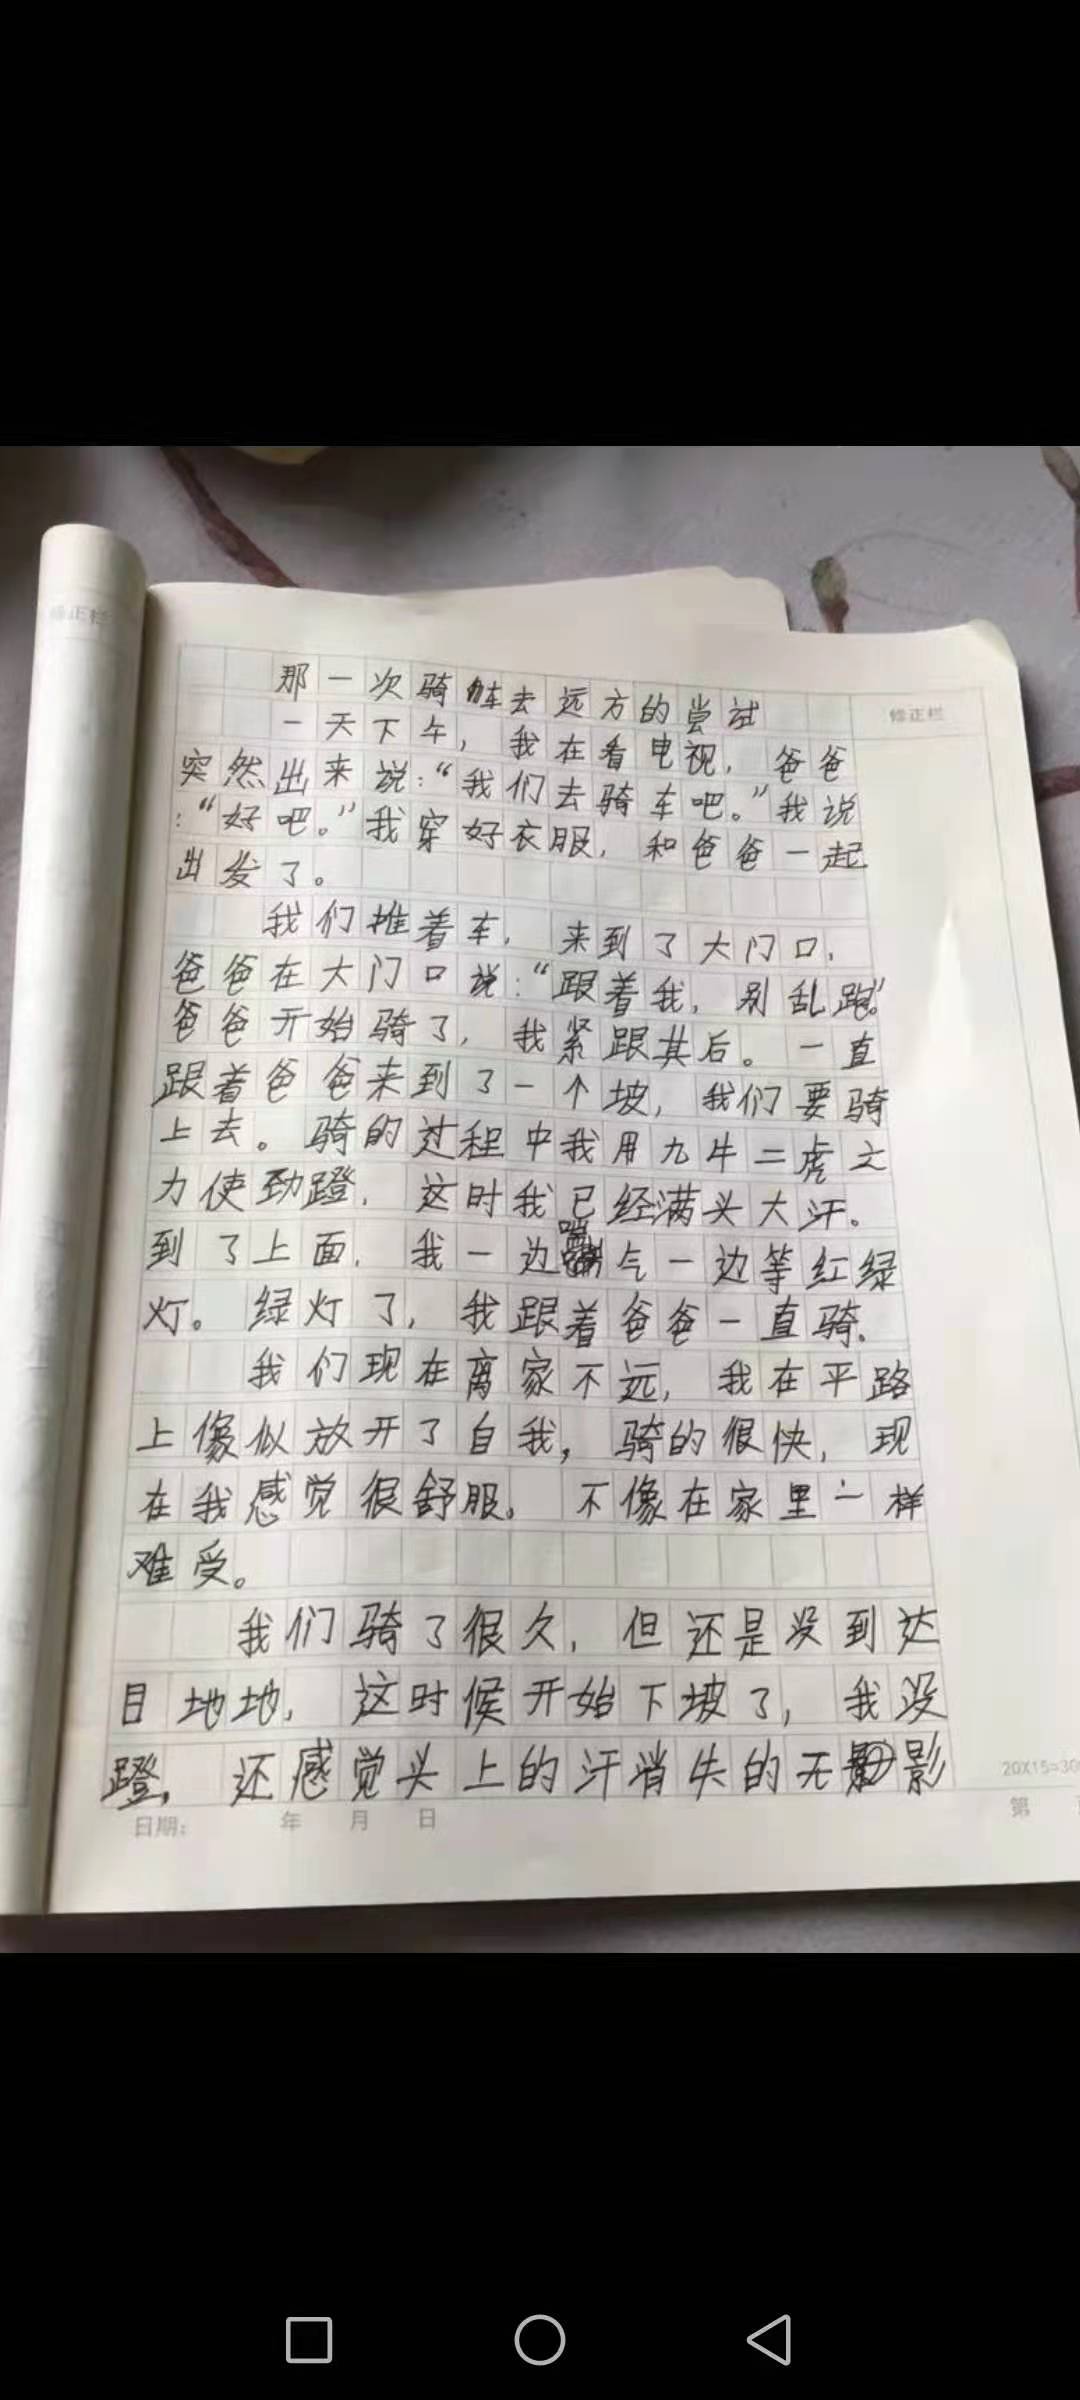 修正栏
那一次骑车去远方的尝试
修正栏
一天下午，我在看电视，爸爸
突然出来说：“我们去骑车吧。”我说
：“好吧。”我穿好衣服，和爸爸一起
出发了。
我们推着车，来到了大门口，
爸爸在大门口说：“跟着我，别乱跑。”
爸爸开始骑了，我紧跟其后。一直
跟着爸爸来到了一个坡，我们要骑
上去。骑的过程中我用九牛二虎之
力使劲蹬，这时我已经满头大汗。
到了上面，我一边喘气一边等红绿
灯。绿灯了，我跟着爸爸一直骑.
我们现在离家不远，我在平路
上像似放开了自我，骑的很快，现
在我感觉很舒服。不像在家里一样
难受。
我们骑了很久，但还是没到达
目地地，这时候开始下坡了，我没
蹬，还感觉头上的汗消失的无影
20X15=30
日期： 年 月 日
第